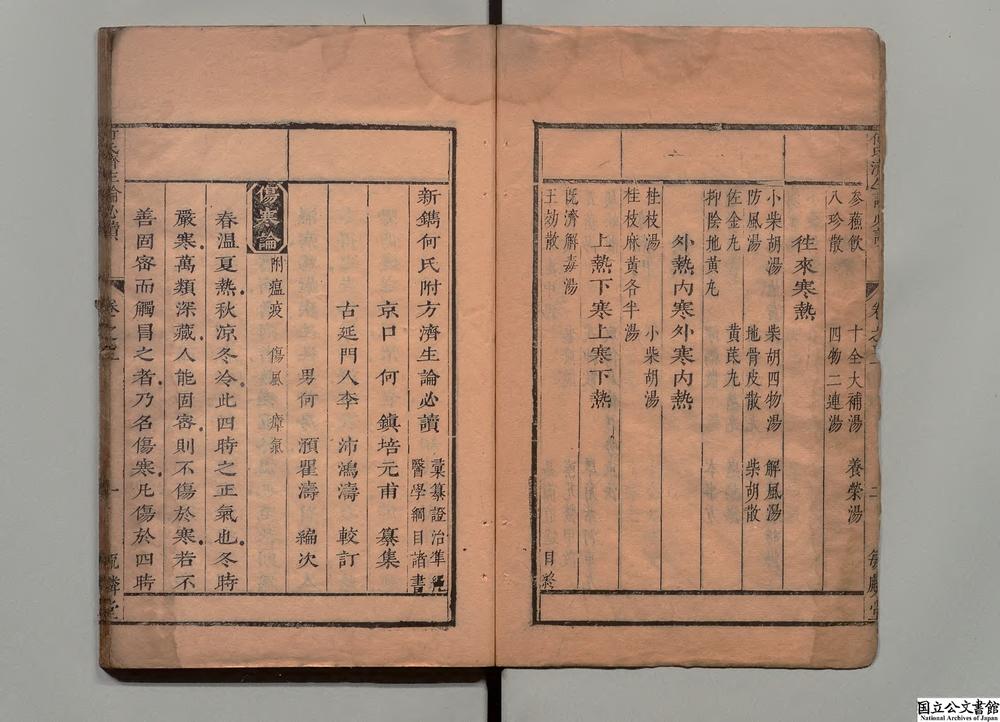 參蘓飲 十全大補湯 養榮湯
八珍散 四物二連湯
徃來寒熱
小柴胡湯 柴胡四物湯 解風湯
防風湯 地骨皮散 柴胡散
佐金丸 黄茋丸
抑陰地黄丸
外熱内寒外寒内熱
桂枝湯 小柴胡湯
桂枝麻黄各半湯
上熱下寒上寒下熱
既濟解毒湯
王劾散 目終
卷之三 二
新鐫何氏附方濟生論必讀 彙纂證治準繩
醫學綱目諸書
京口 何 鎮培元甫 纂集
古延門人李 沛鴻濤 較訂
男何 瀩瞿濤 編次
傷寒論 附瘟疫 傷風 瘴氣
春温夏熱秋凉冬冷此四時之正氣也冬時
嚴寒萬類深藏人能固密則不傷於寒若不
善固密而觸冒之者乃名傷寒凡傷於四時
何氏濟生論必讀 卷之三 一
国立公文書館
National Archives of Japan